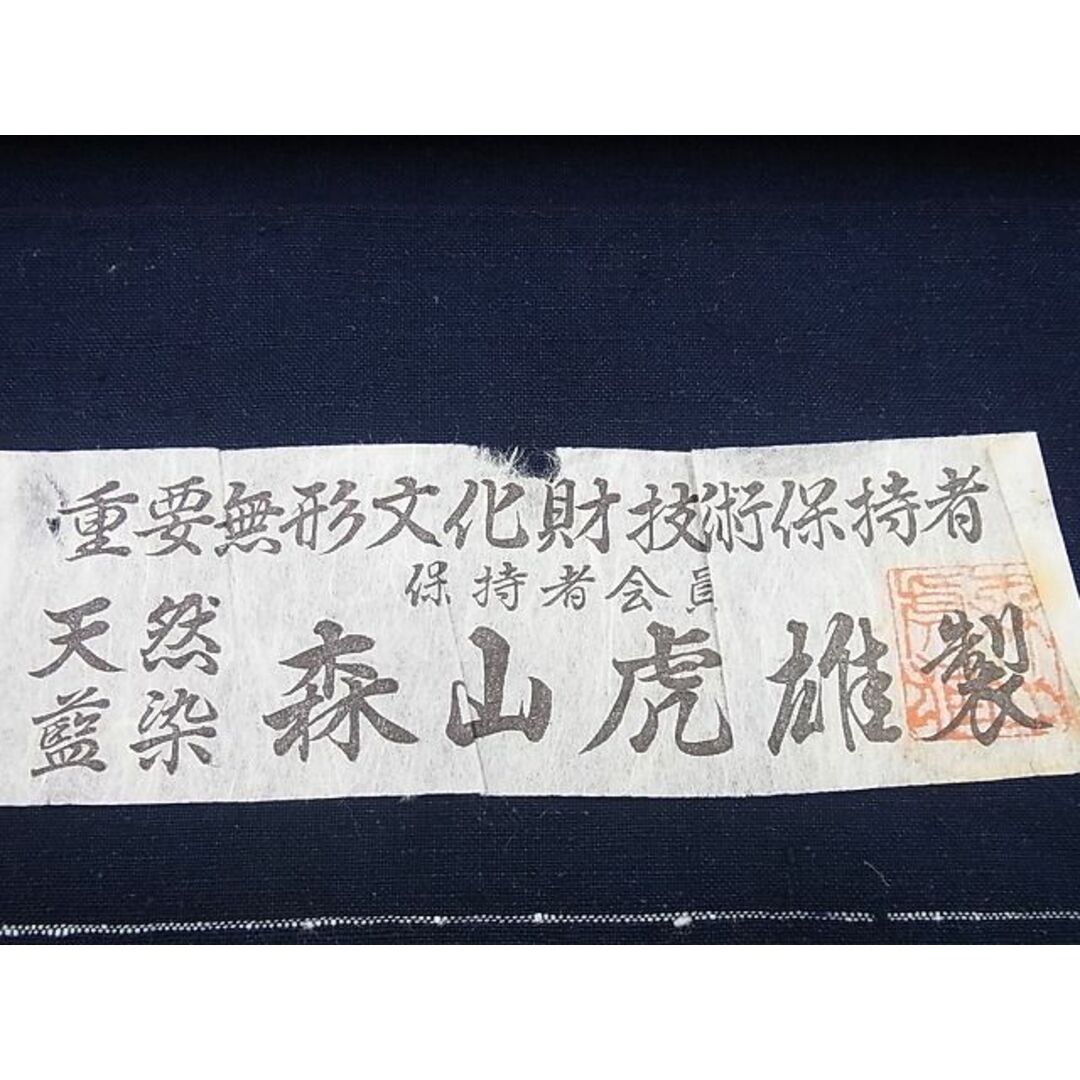 重要無形文化財技術保持者
保持者会員
天然
藍染
森山虎雄製